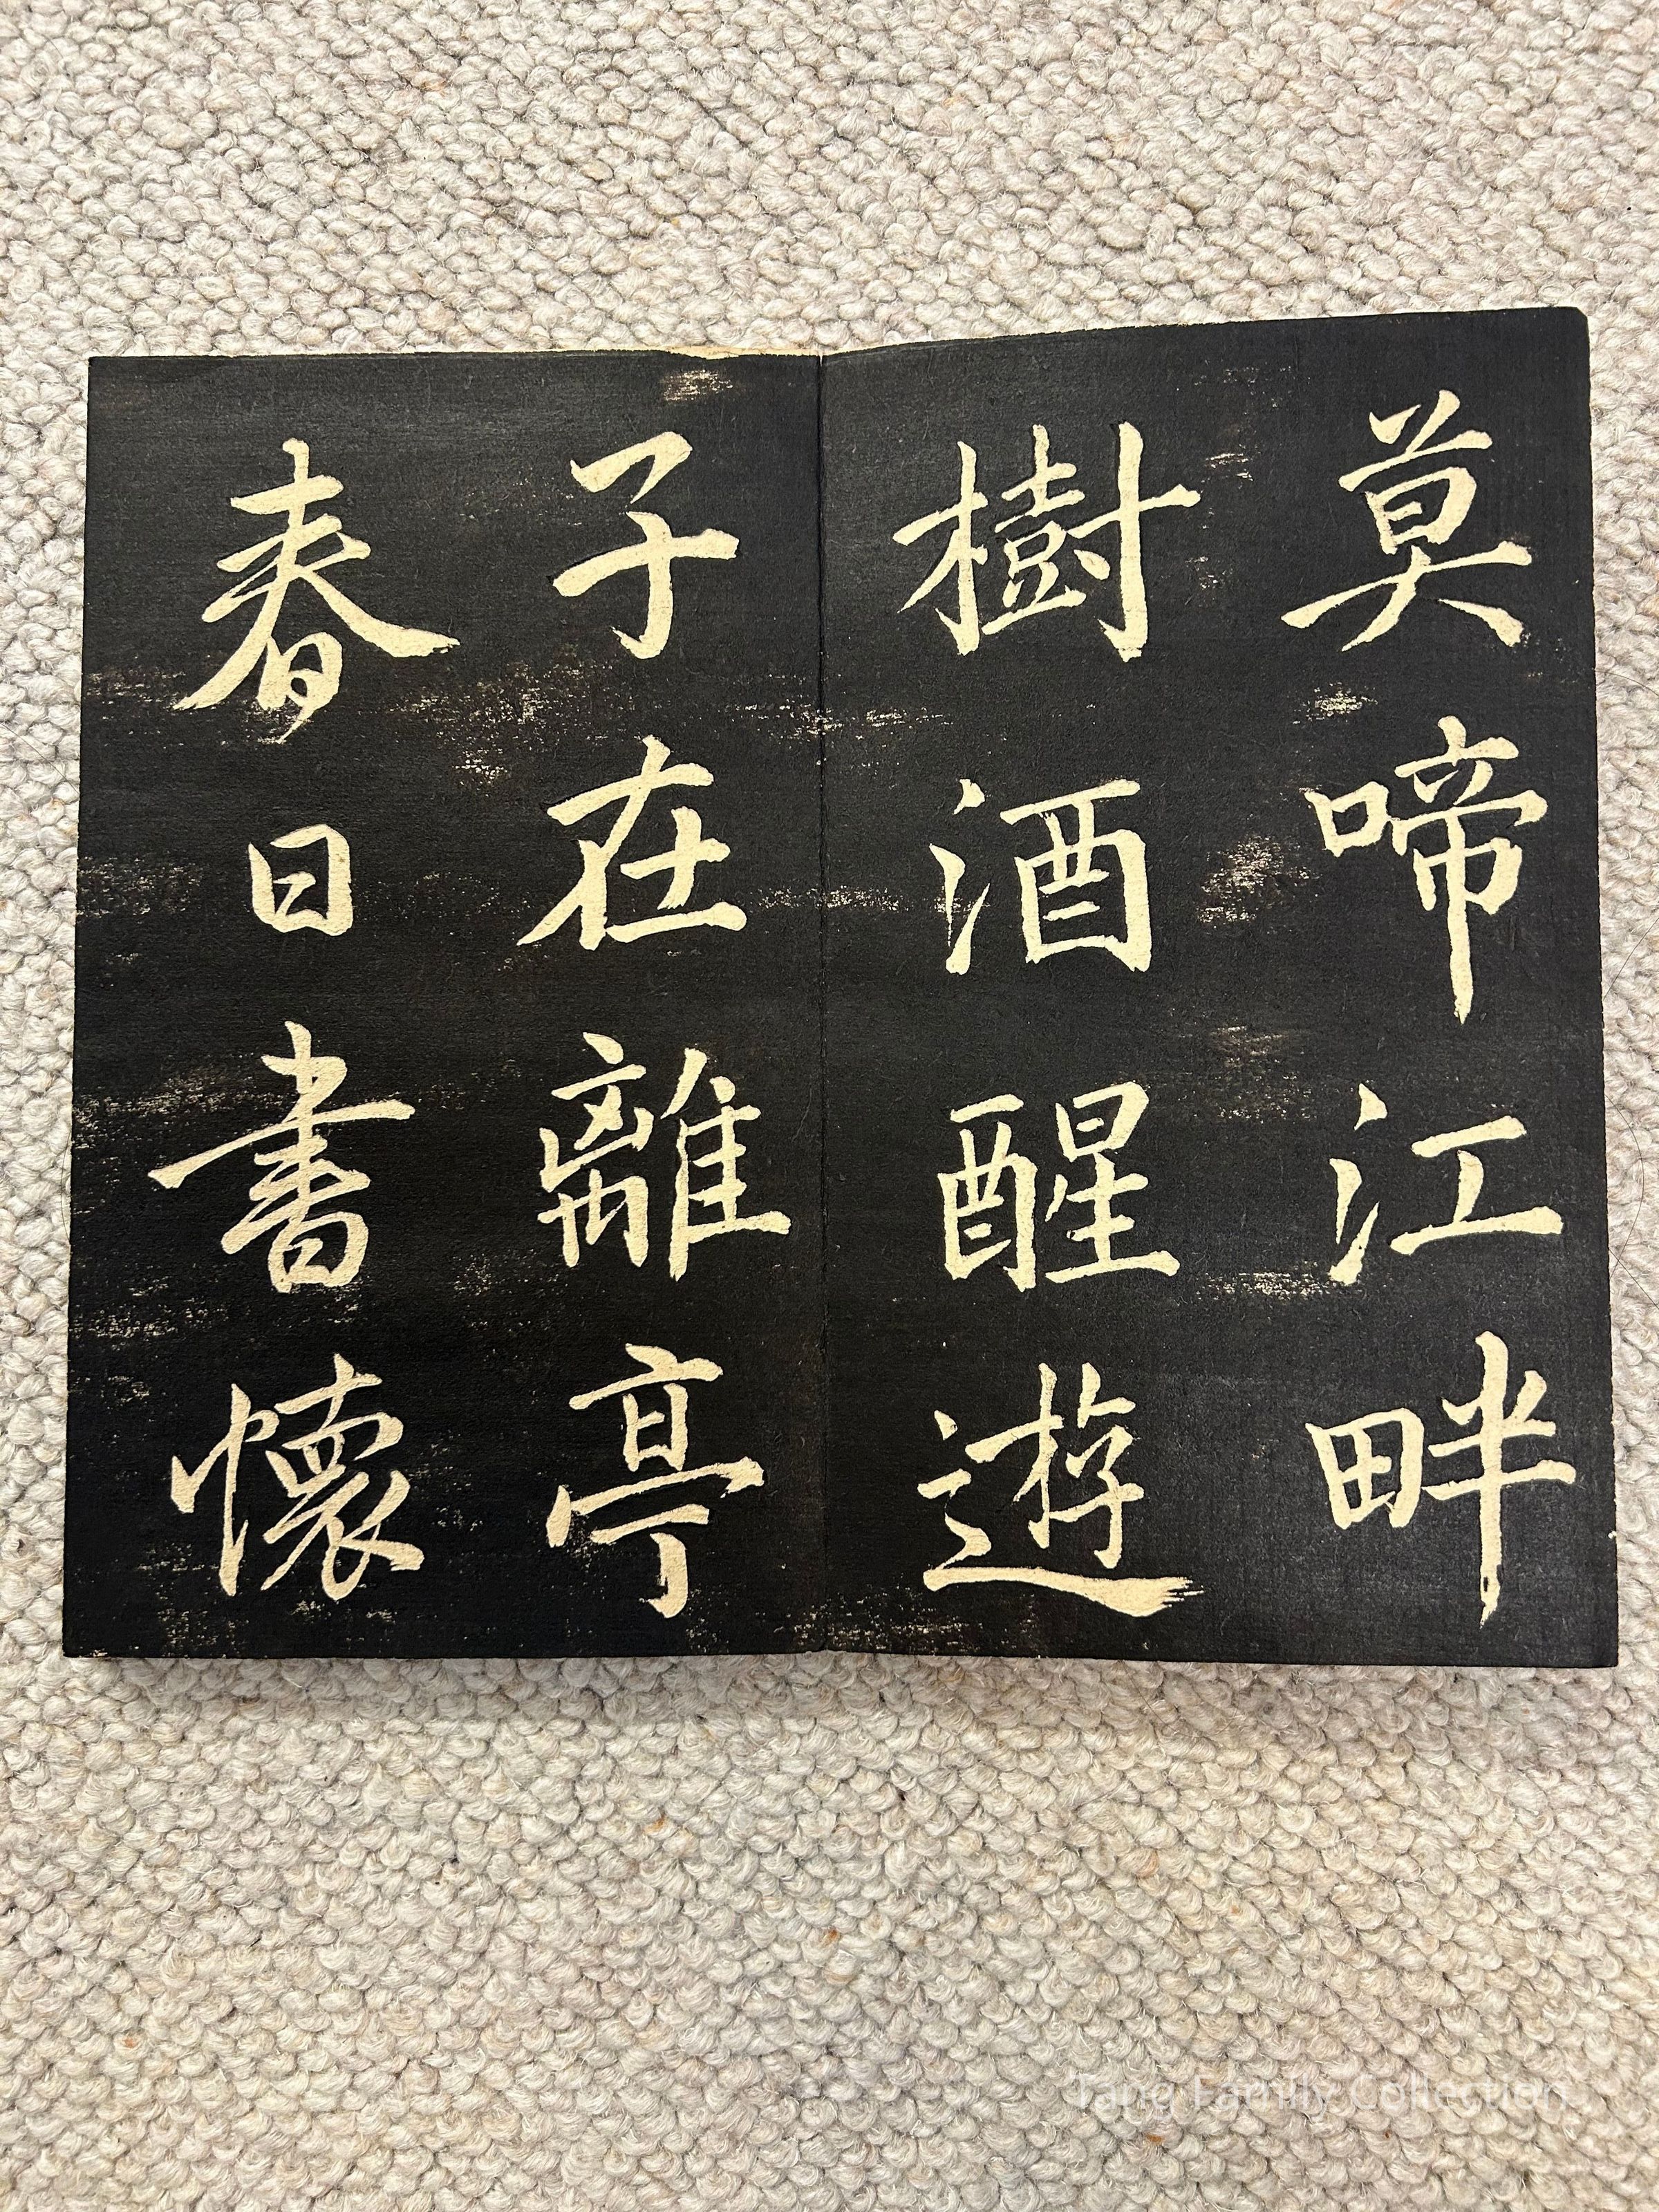 莫啼江畔
樹酒醒遊
子在離亭
春日書懷
Tang Family Collection